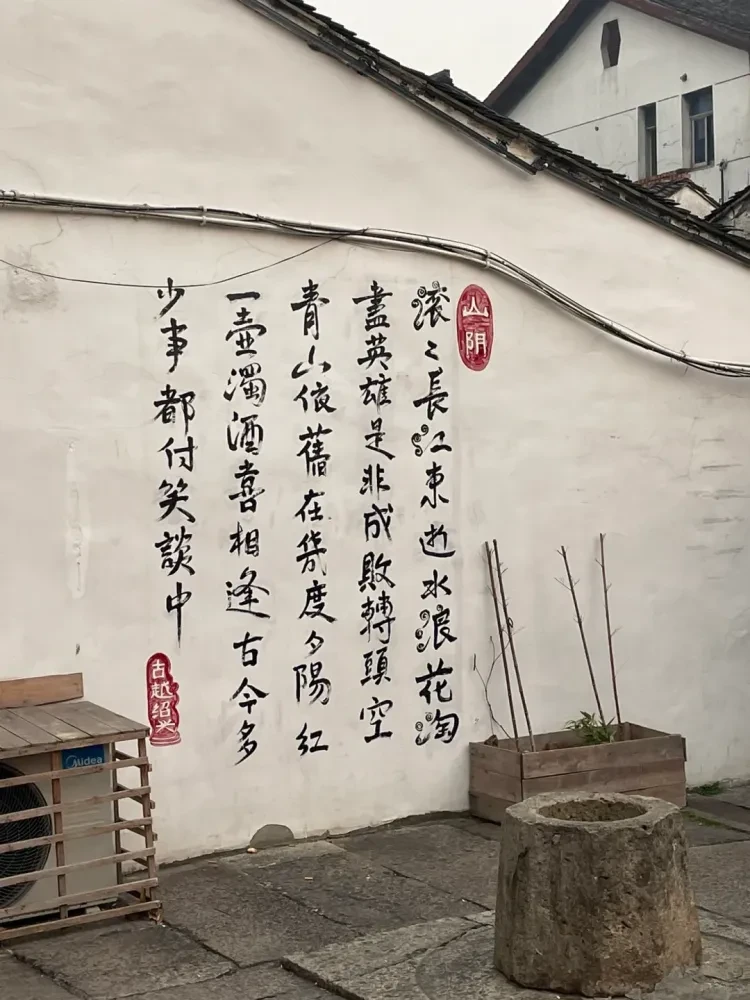 山阴
滚〻長江東逝水浪花淘
盡英雄是非成敗轉頭空
青山依舊在幾度夕陽紅
一壺濁酒喜相逢古今多
少事都付笑談中
古越绍兴
Midea